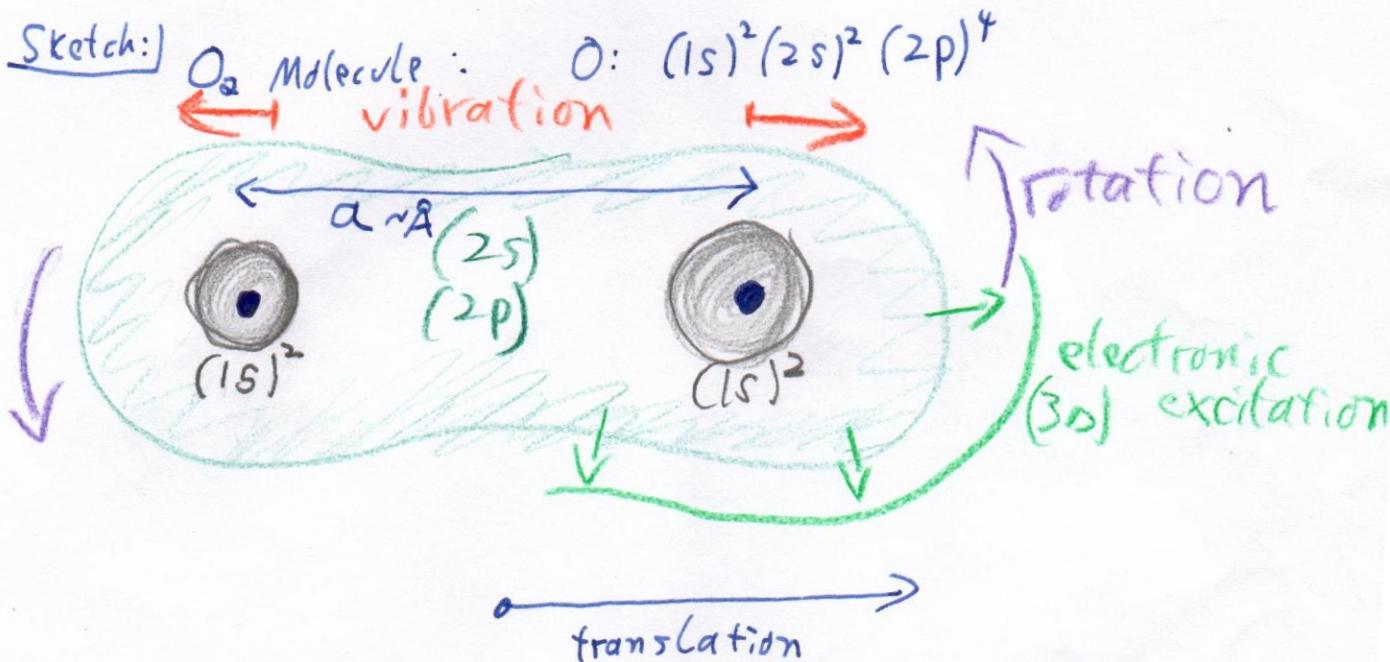 Sketch: O₂ Molecule: O: (1s)² (2s)² (2p)⁴
vibration
rotation
a ~ Å
(2s)
(2p)
(1s)²
(1s)²
electronic
(3s) excitation
translation